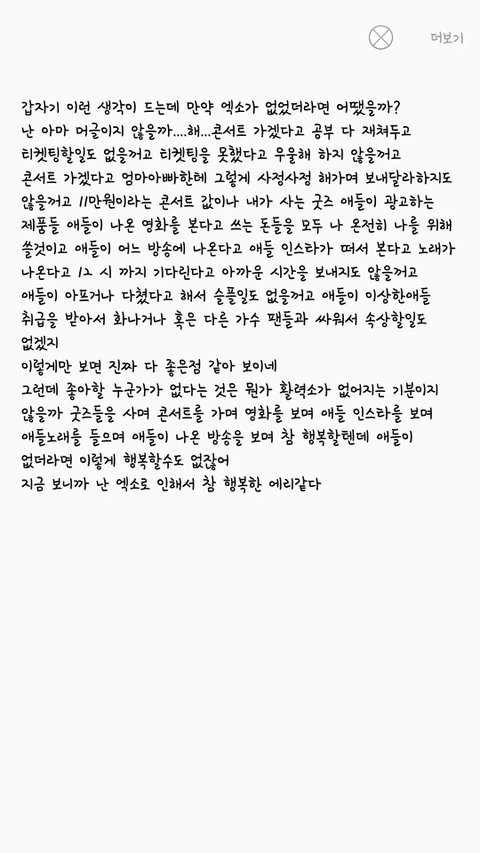 더보기
갑자기 이런 생각이 드는데 만약 엑소가 없었더라면 어땠을까?
난 아마 머글이지 않을까....해...콘서트 가겠다고 공부 다 재쳐두고
티켓팅할일도 없을꺼고 티켓팅을 못했다고 우울해 하지 않을꺼고
콘서트 가겠다고 엄마아빠한테 그렇게 사정사정 해가며 보내달라하지도
않을꺼고 11만원이라는 콘서트 값이나 내가 사는 굿즈 애들이 광고하는
제품들 애들이 나온 영화를 본다고 쓰는 돈들을 모두 나 온전히 나를 위해
쓸것이고 애들이 어느 방송에 나온다고 애들 인스타가 떠서 본다고 노래가
나온다고 12 시 까지 기다린다고 아까운 시간을 보내지도 않을꺼고
애들이 아프거나 다쳤다고 해서 슬플일도 없을꺼고 애들이 이상한애들
취급을 받아서 화나거나 혹은 다른 가수 팬들과 싸워서 속상할일도
없겠지
이렇게만 보면 진짜 다 좋은점 같아 보이네
그런데 좋아할 누군가가 없다는 것은 뭔가 활력소가 없어지는 기분이지
않을까 굿즈들을 사며 콘서트를 가며 영화를 보며 애들 인스타를 보며
애들노래를 들으며 애들이 나온 방송을 보며 참 행복할텐데 애들이
없더라면 이렇게 행복할수도 없잖어
지금 보니까 난 엑소로 인해서 참 행복한 에리같다